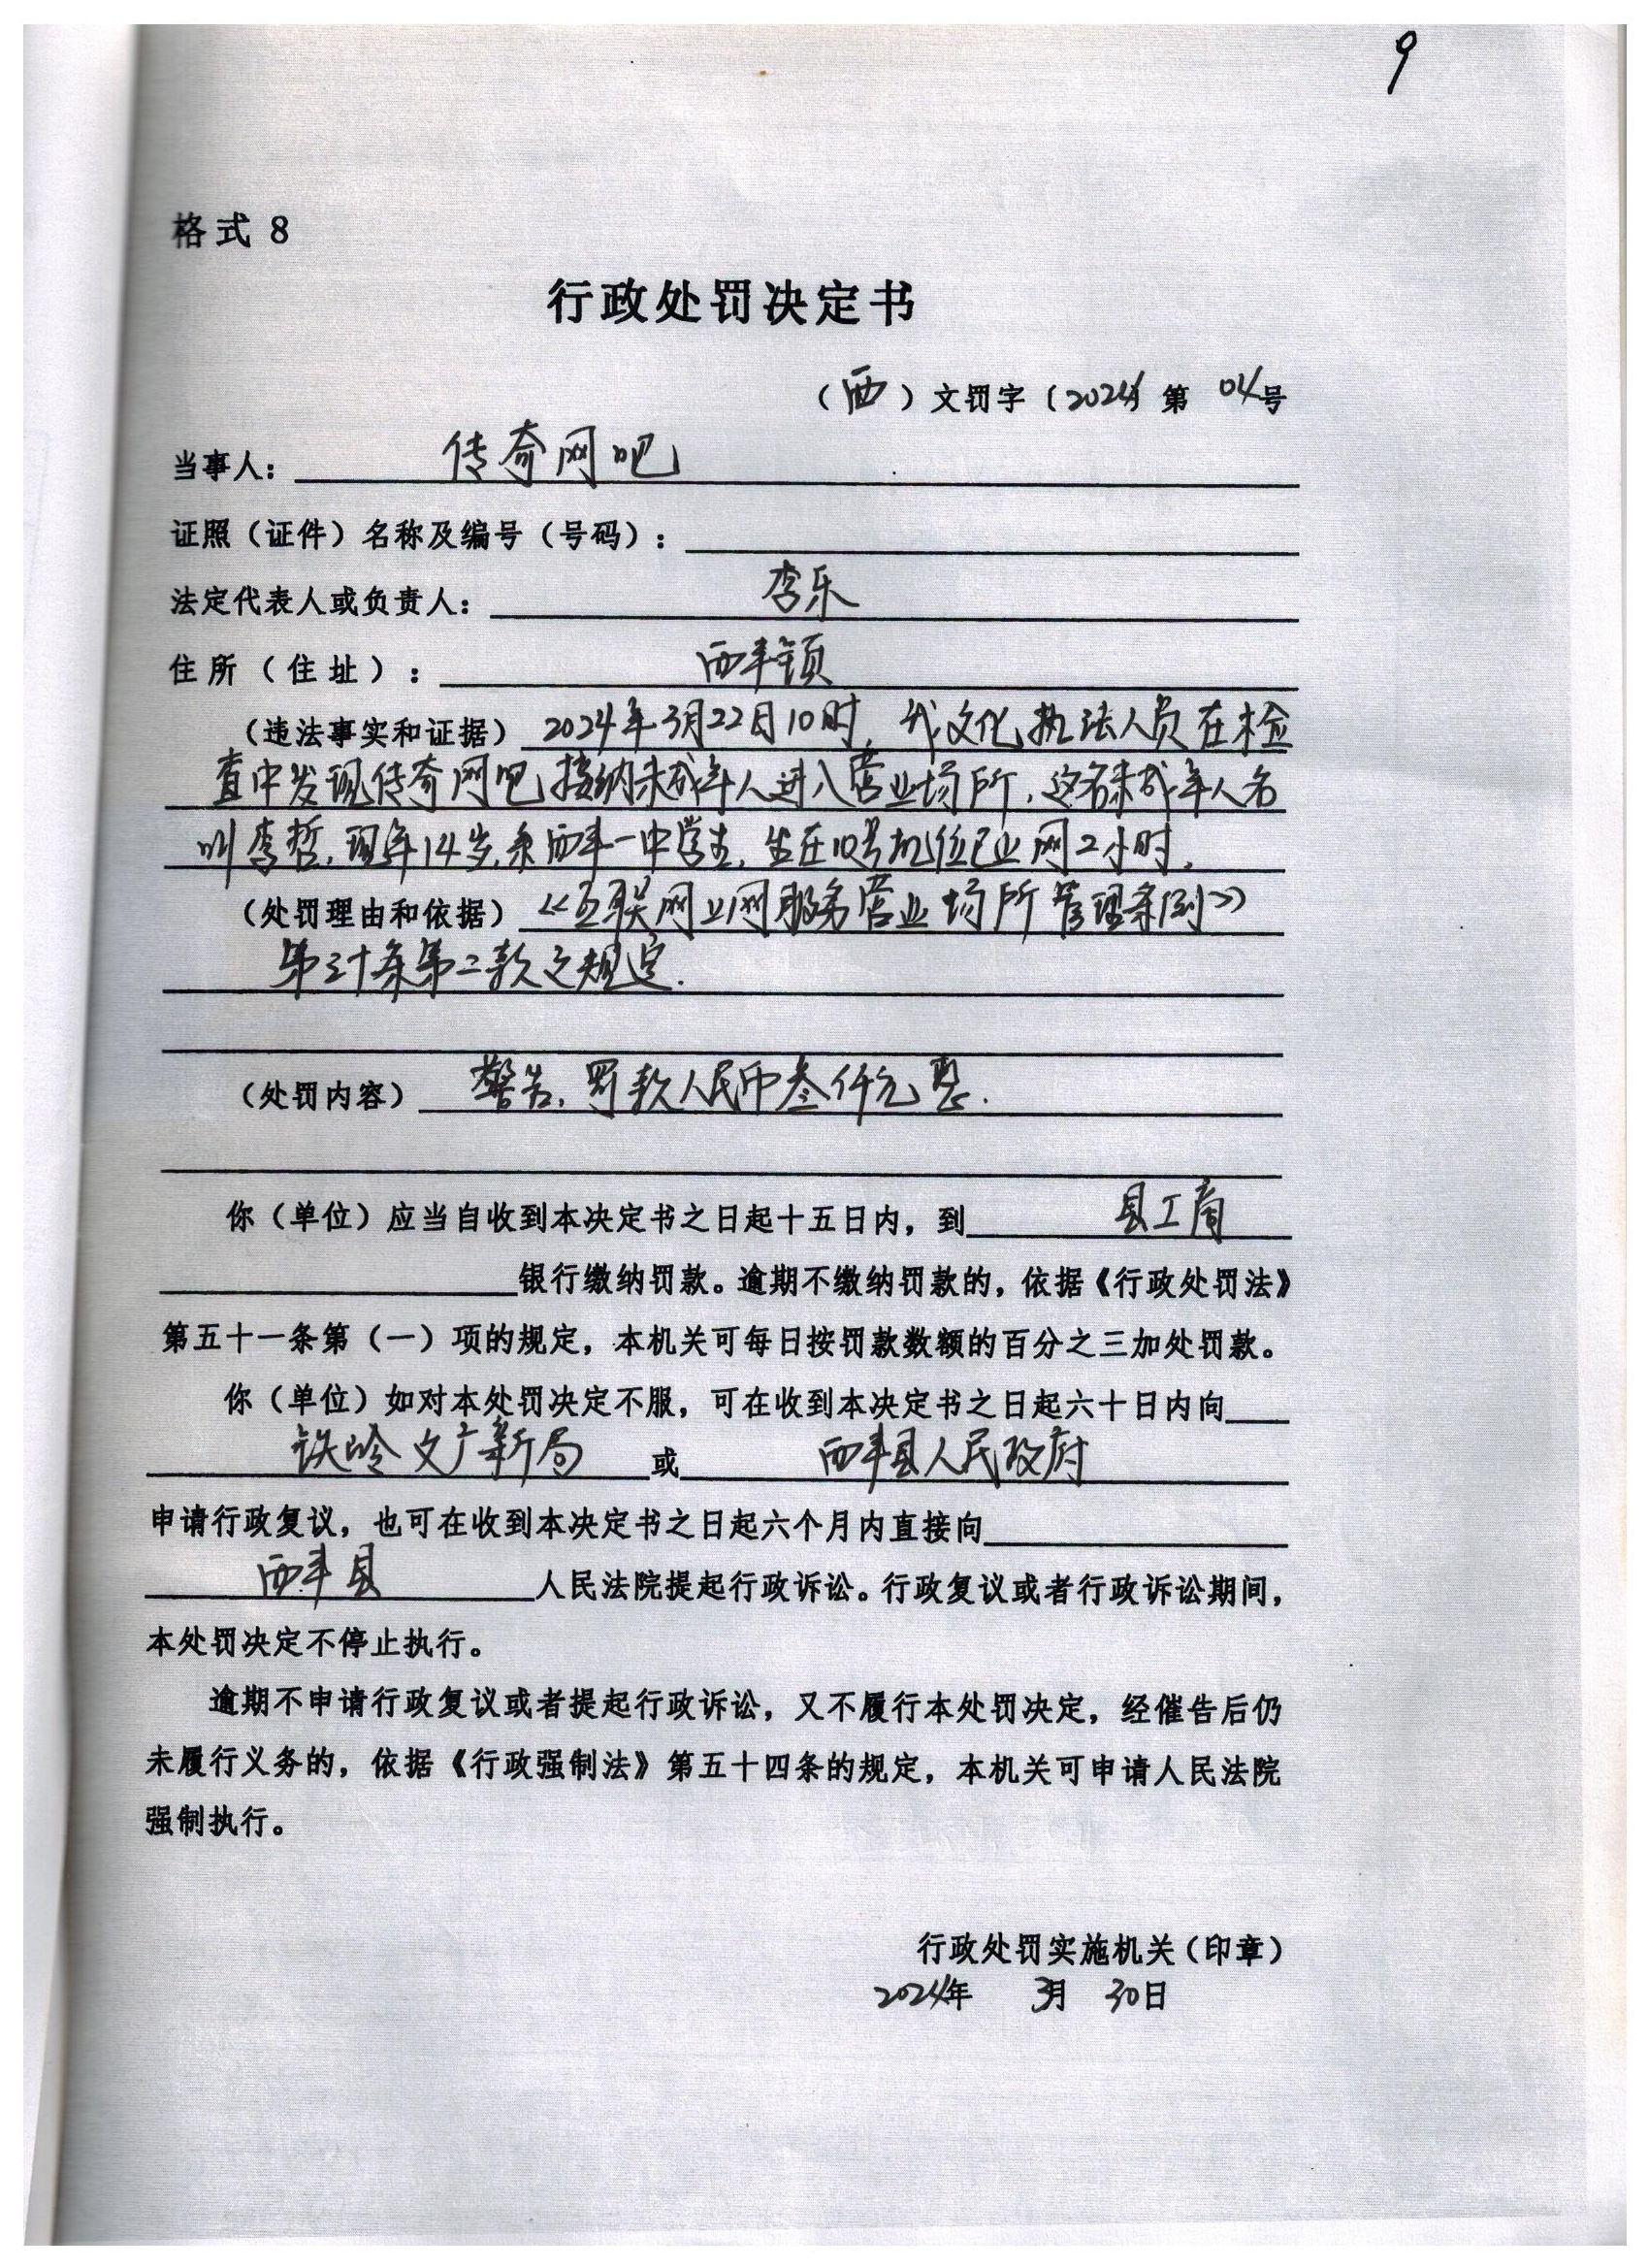 9
格式 8
行政处罚决定书
（西）文罚字〔2024〕第 04号
当事人：传奇网吧
证照（证件）名称及编号（号码）：
法定代表人或负责人：李乐
住所（住址）：西丰镇
（违法事实和证据）2024年3月22日10时，我文化执法人员在检
查中发现传奇网吧接纳未成年人进入营业场所，这名未成年人名
叫李哲，现年14岁，系西丰一中学生，坐在10号机位已上网2小时。
（处罚理由和依据）《互联网上网服务营业场所管理条例》
第三十条第二款之规定.
（处罚内容）警告，罚款人民币叁仟元整.
你（单位）应当自收到本决定书之日起十五日内，到 县工商
银行缴纳罚款。逾期不缴纳罚款的，依据《行政处罚法》
第五十一条第（一）项的规定，本机关可每日按罚款数额的百分之三加处罚款。
你（单位）如对本处罚决定不服，可在收到本决定书之日起六十日内向
铁岭文广新局 或 西丰县人民政府
申请行政复议，也可在收到本决定书之日起六个月内直接向
西丰县 人民法院提起行政诉讼。行政复议或者行政诉讼期间，
本处罚决定不停止执行。
逾期不申请行政复议或者提起行政诉讼，又不履行本处罚决定，经催告后仍
未履行义务的，依据《行政强制法》第五十四条的规定，本机关可申请人民法院
强制执行。
行政处罚实施机关（印章）
2024年 3月 30日